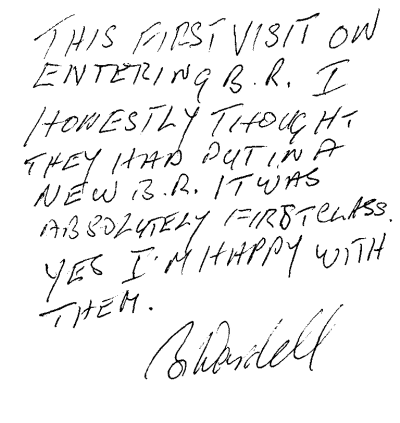 THIS FIRST VISIT ON
ENTERING B.R. I
HONESTLY THOUGHT
THEY HAD PUT IN A
NEW B.R. IT WAS
ABSOLUTELY FIRST CLASS.
YES I'M HAPPY WITH
THEM.